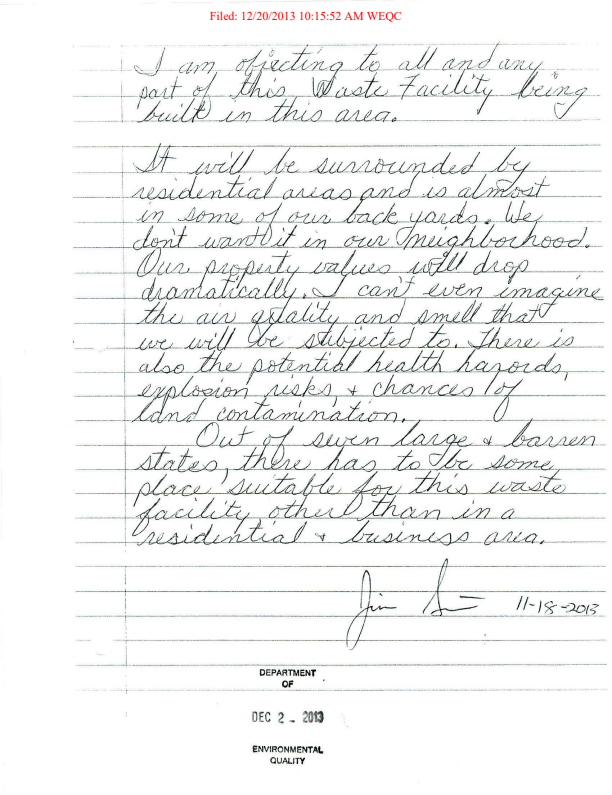 Filed: 12/20/2013 10:15:52 AM WEQC
I am objecting to all and any
part of this Waste Facility being
built in this area.
It will be surrounded by
residential areas and is almost
in some of our back yards. We
don't want it in our neighborhood.
Our property values will drop
dramatically. I can't even imagine
the air quality and smell that
we will be subjected to. There is
also the potential health hazords,
explosion risks, & chances of
land contamination.
Out of seven large & barren
states, there has to be some
place suitable for this waste
facility other than in a
residential & business area.
Jim 11-18-2013
DEPARTMENT
OF
DEC 2 - 2013
ENVIRONMENTAL
QUALITY